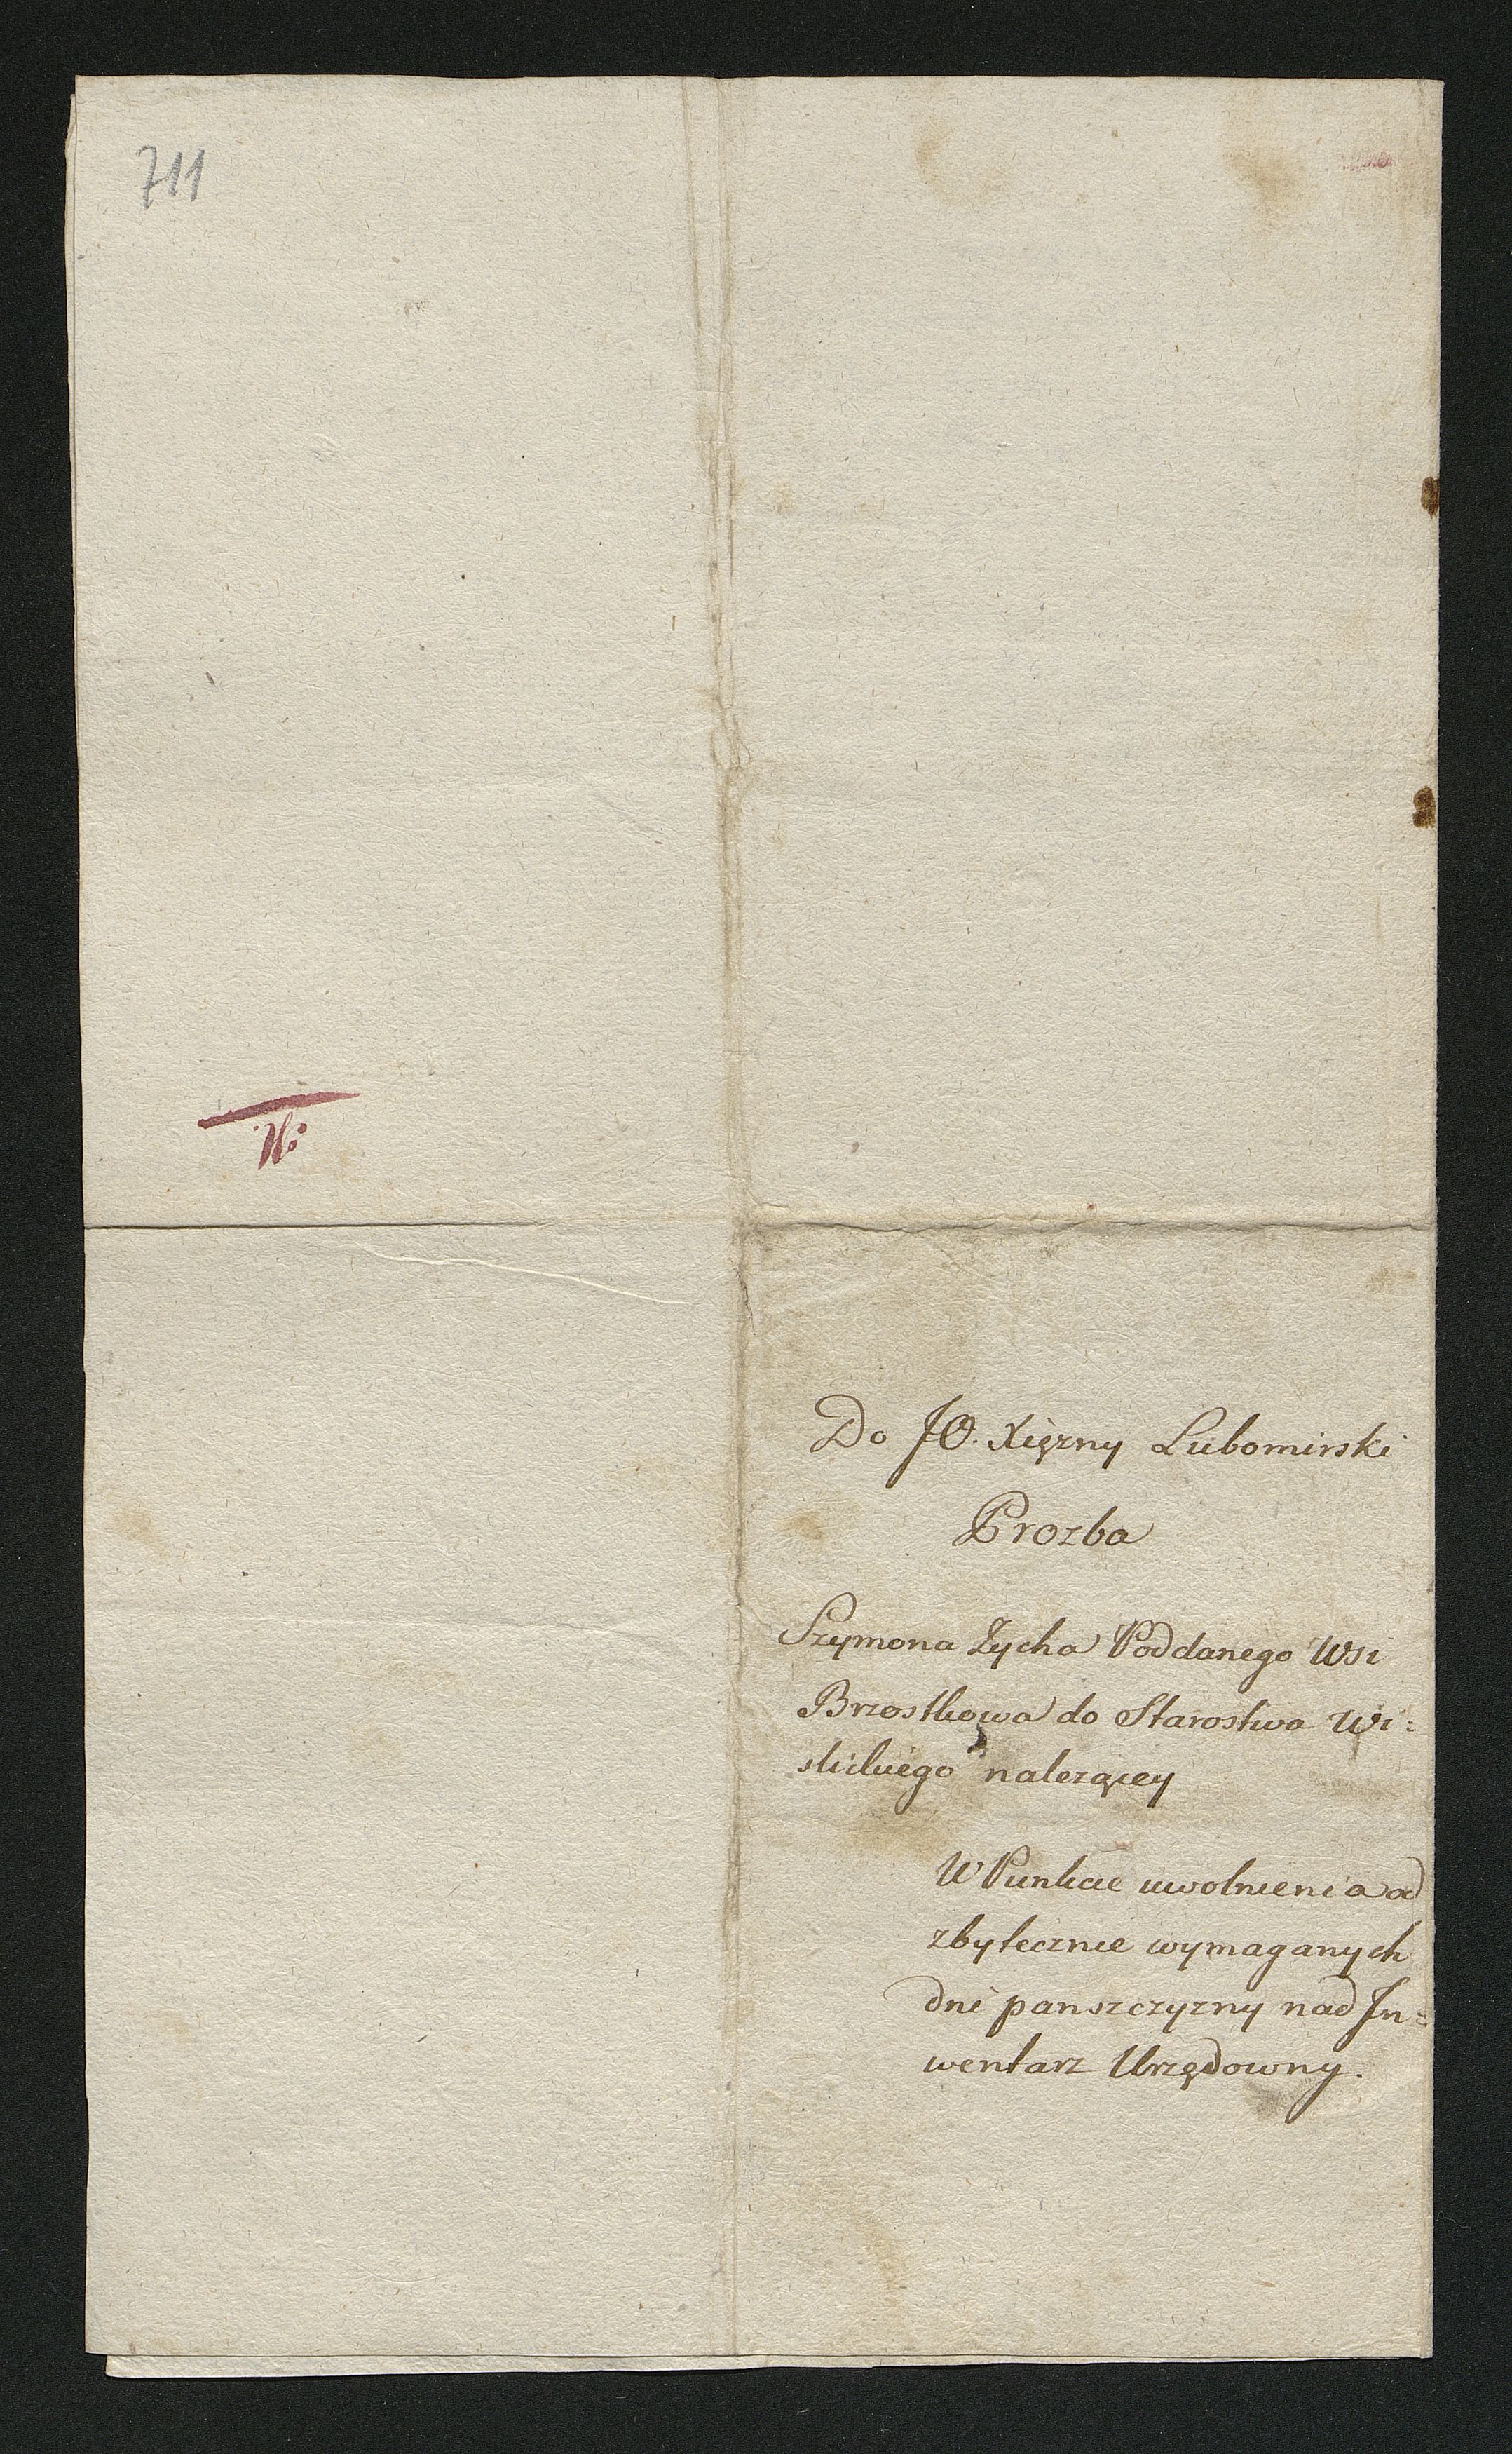 711
Do JO. Xięzny Lubomirski
Prozba
Szymona Zycha Poddanego Wsi
Brzostkowa do Starostwa Wi=
slickiego nalezącey
W Punkcie uwolnienia od
zbytecznie wymaganych
dni panszczyzny nad In=
wentarz Urzędowny.